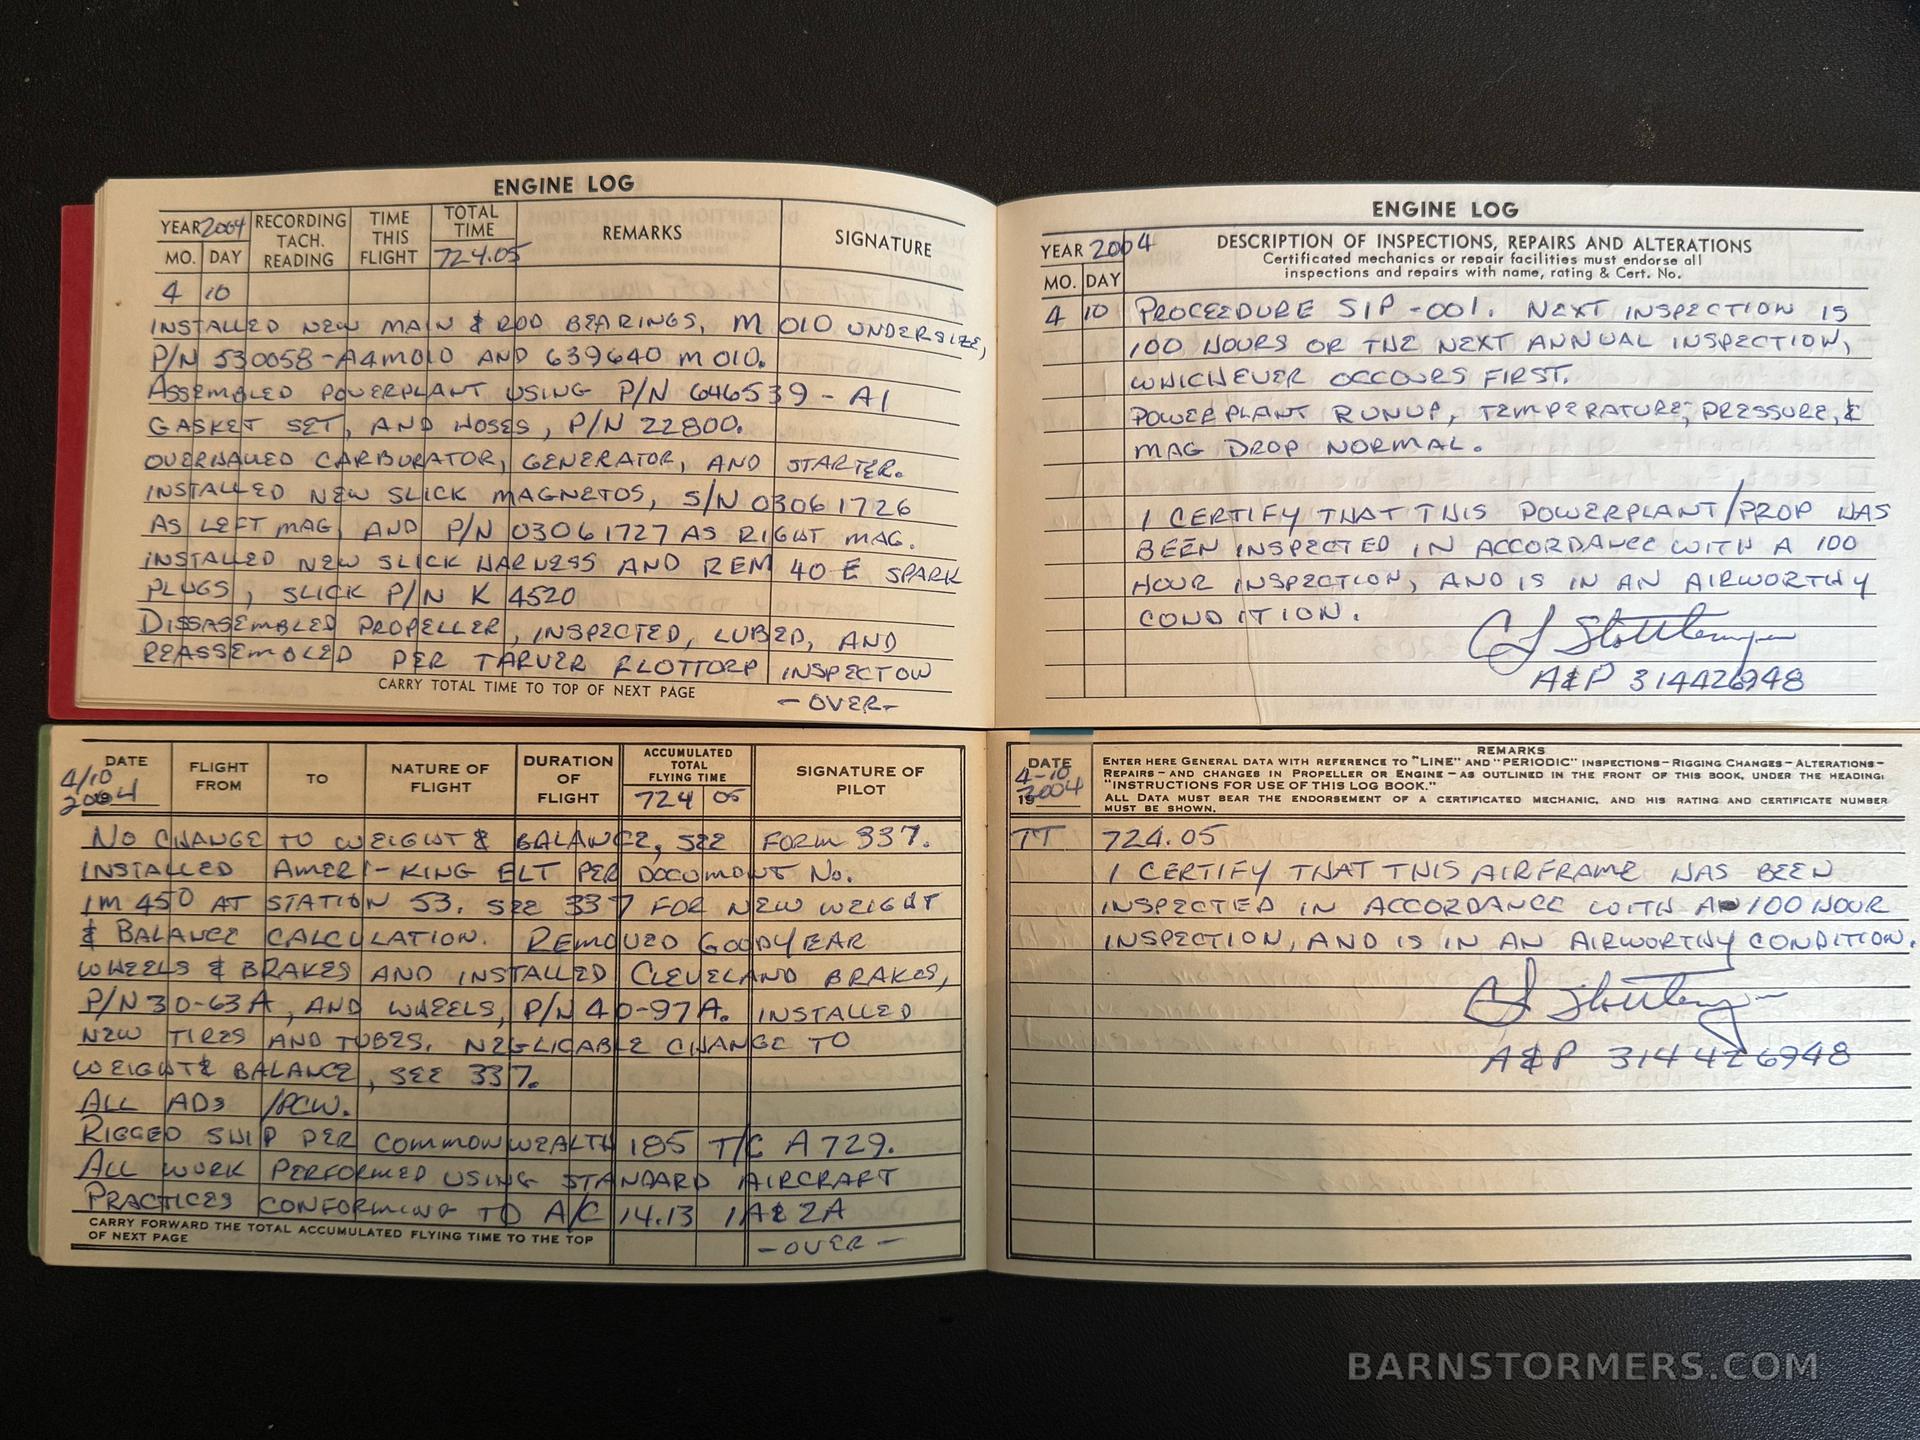 ENGINE LOG
YEAR 2004 RECORDING TACH. READING TIME THIS FLIGHT TOTAL TIME 724.05 REMARKS SIGNATURE
MO. DAY
4 10
INSTALLED NEW MAIN & ROD BEARINGS, M 010 UNDERSIZE,
P/N 530058-A4M010 AND 639640 M 010.
ASSEMBLED POWERPLANT USING P/N 646539-A1
GASKET SET, AND HOSES, P/N 22800.
OVERHAULED CARBURATOR, GENERATOR, AND STARTER.
INSTALLED NEW SLICK MAGNETOS, S/N 03061726
AS LEFT MAG, AND P/N 03061727 AS RIGHT MAG.
INSTALLED NEW SLICK HARNESS AND REM 40 E SPARK
PLUGS, SLICK P/N K 4520
DISSASEMBLED PROPELLER, INSPECTED, LUBED, AND
REASSEMBLED PER TARVER FLOTTORP INSPECTION
CARRY TOTAL TIME TO TOP OF NEXT PAGE
-OVER-
ENGINE LOG
YEAR 2004 DESCRIPTION OF INSPECTIONS, REPAIRS AND ALTERATIONS
Certificated mechanics or repair facilities must endorse all
MO. DAY inspections and repairs with name, rating & Cert. No.
4 10 PROCEEDURE SIP-001. NEXT INSPECTION IS
100 HOURS OR THE NEXT ANNUAL INSPECTION,
WHICHEVER OCCOURS FIRST.
POWERPLANT RUNUP, TEMPERATURE, PRESSURE, &
MAG DROP NORMAL.
I CERTIFY THAT THIS POWERPLANT/PROP HAS
BEEN INSPECTED IN ACCORDANCE WITH A 100
HOUR INSPECTION, AND IS IN AN AIRWORTHY
CONDITION.
A&P 314426948
DATE FLIGHT FROM TO NATURE OF FLIGHT DURATION OF FLIGHT ACCUMULATED TOTAL FLYING TIME SIGNATURE OF PILOT
4/10 2004 724 05
NO CHANGE TO WEIGHT & BALANCE, SEE FORM 337.
INSTALLED AMERI-KING ELT PER DOCUMONT NO.
IM 450 AT STATION 53. SEE 337 FOR NEW WEIGHT
& BALANCE CALCULATION. REMOVED GOODYEAR
WHEELS & BRAKES AND INSTALLED CLEVELAND BRAKES,
P/N 30-63A, AND WHEELS, P/N 40-97A. INSTALLED
NEW TIRES AND TUBES. NEGLICABLE CHANGE TO
WEIGHT & BALANCE, SEE 337.
ALL ADs /PCW.
RIGGED SHIP PER COMMONWEALTH 185 T/C A729.
ALL WORK PERFORMED USING STANDARD AIRCRAFT
PRACTICES CONFORMING TO A/C 14.13 1A & 2A
CARRY FORWARD THE TOTAL ACCUMULATED FLYING TIME TO THE TOP
OF NEXT PAGE
-OVER-
REMARKS
DATE ENTER HERE GENERAL DATA WITH REFERENCE TO "LINE" AND "PERIODIC" INSPECTIONS-RIGGING CHANGES-ALTERATIONS-
4-10 REPAIRS-AND CHANGES IN PROPELLER OR ENGINE-AS OUTLINED IN THE FRONT OF THIS BOOK, UNDER THE HEADING:
19 2004 "INSTRUCTIONS FOR USE OF THIS LOG BOOK."
ALL DATA MUST BEAR THE ENDORSEMENT OF A CERTIFICATED MECHANIC, AND HIS RATING AND CERTIFICATE NUMBER
MUST BE SHOWN.
TT 724.05
I CERTIFY THAT THIS AIRFRAME HAS BEEN
INSPECTED IN ACCORDANCE WITH A 100 HOUR
INSPECTION, AND IS IN AN AIRWORTHY CONDITION.
A&P 314426948
BARNSTORMERS.COM